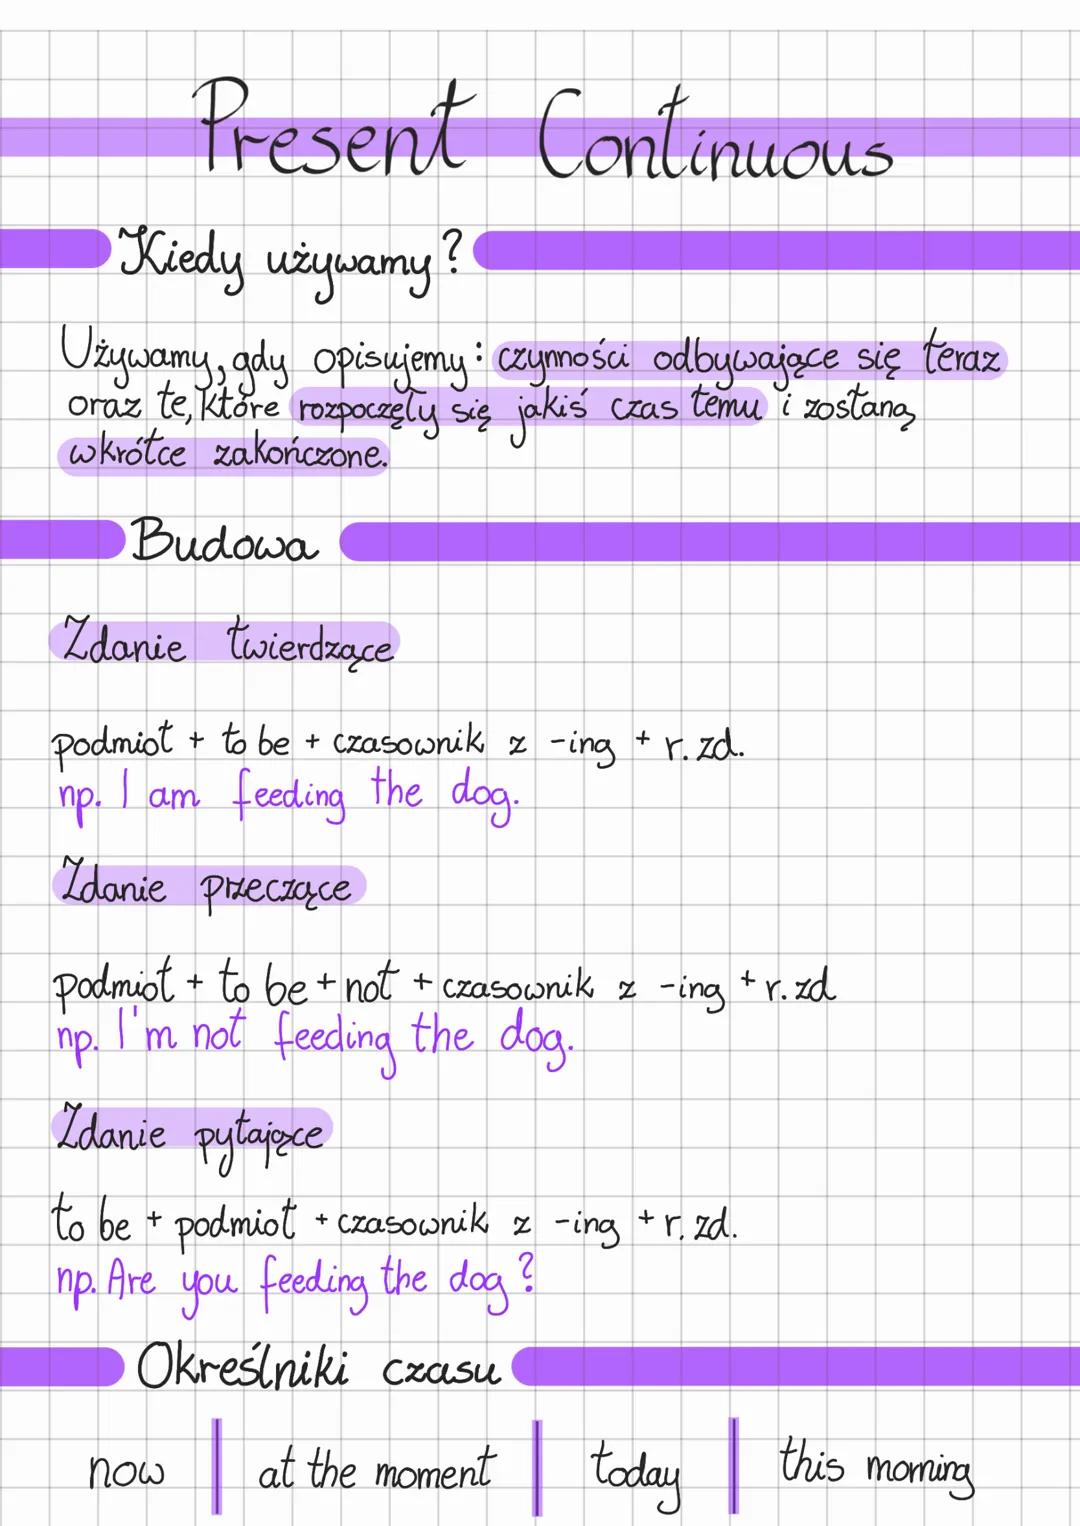 Present Continuous
Kiedy używamy?
Używamy, gdy opisujemy: czynności odbywające się teraz
oraz te, które rozpoczęły się jakiś czas temu i zostaną
wkrótce zakończone.
Budowa
Zdanie twierdzące
podmiot + to be + czasownik z -ing + r. zd.
np. I am feeding the dog.
Zdanie przeczące
podmiot + to be + not + czasownik z -ing + r. zd
np. I'm not feeding the dog.
Zdanie pytające
to be + podmiot + czasownik z -ing + r. zd.
np. Are you feeding the dog?
Określniki czasu
now | at the moment | today | this morning